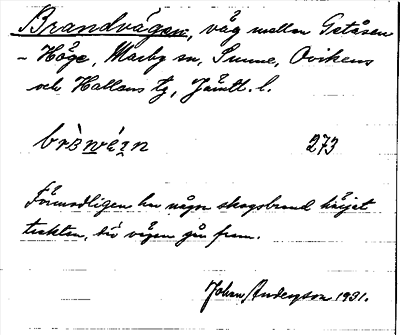 Brandvägen, väg mellan Getåsen
– Höge, Marby sn, Sunne, Ovikens
och Hallens tg, Jämtl. l.
273
Förmodligen har någon skogsbrand härjat
trakten, där vägen går fram.
Johan Anderzson 1931.